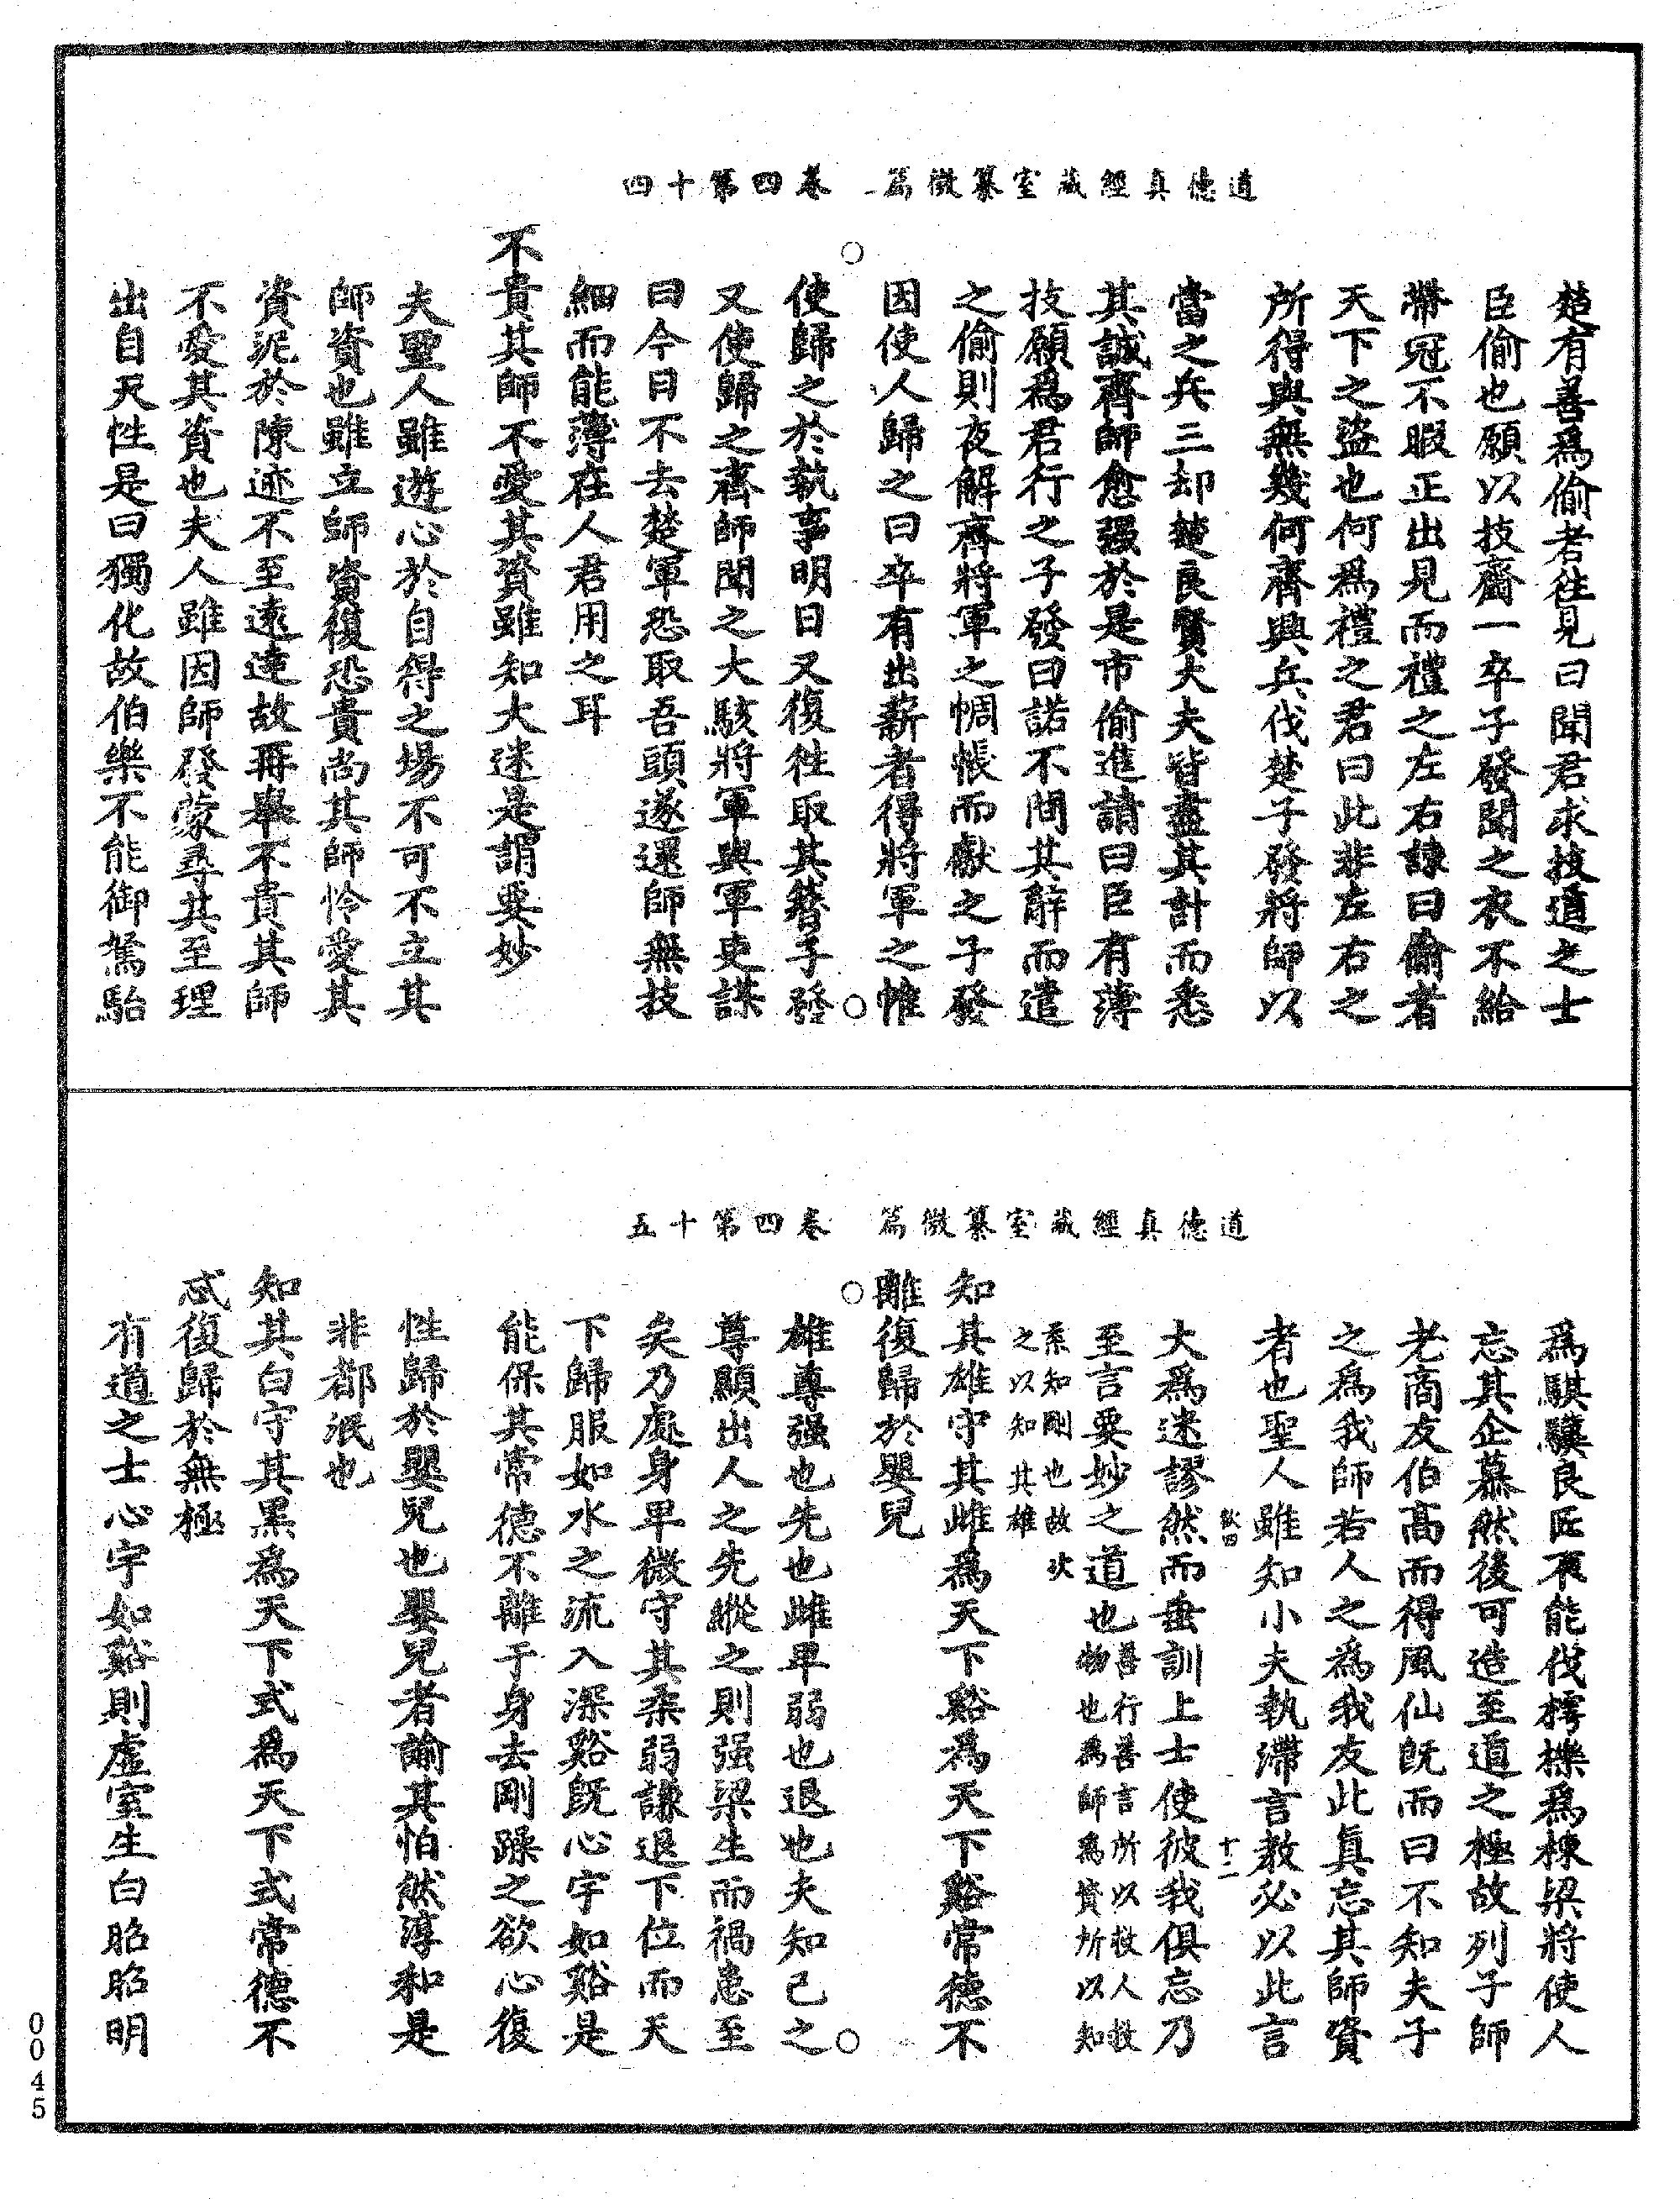 道德真經藏室纂微篇　卷四第十四
楚有善為偷者往見曰聞君求技道之士
臣偷也願以技齎一卒子發聞之衣不給
帶冠不暇正出見而禮之左右諫曰偷者
天下之盜也何為禮之君曰此非左右之
所得與無幾何齊興兵伐楚子發將師以
當之兵三却楚良賢大夫皆盡其計而悉
其誠齊師愈强於是市偷進請曰臣有薄
技願為君行之子發曰諾不問其辭而遣
之偷則夜解齊將軍之幬帳而獻之子發
因使人歸之曰卒有出薪者得將軍之帷
使歸之於執事明日又復往取其簪子發
又使歸之齊師聞之大駭將軍與軍吏謀
曰今日不去楚軍恐取吾頭遂還師無技
細而能薄在人君用之耳
不貴其師不愛其資雖知大迷是謂要妙
夫聖人雖遊心於自得之場不可不立其
師資也雖立師資復恐貴尚其師怜愛其
資泥於陳迹不至遠達故再舉不貴其師
不愛其資也夫人雖因師發蒙尋其至理
出自天性是曰獨化故伯樂不能御駑駘
道德真經藏室纂微篇　卷四第十五
為騏驥良匠不能伐樗櫟為棟梁將使人
忘其企慕然後可造至道之極故列子師
老商友伯高而得風仙既而曰不知夫子
之為我師若人之為我友此真忘其師資
者也聖人雖知小夫執滯言教必以此言
十二
大為迷謬然而垂訓上士使彼我俱忘乃
至言要妙之道也善行善言所以救人救
物也為師為資所以知
柔知剛也故次
之以知其雄
知其雄守其雌為天下谿為天下谿常德不
離復歸於嬰兒
雄尊强也先也雌卑弱也退也夫知己之
尊顯出人之先縱之則强梁生而禍患至
矣乃處身卑微守其柔弱謙退下位而天
下歸服如水之流入深谿既心宇如谿是
能保其常德不離于身去剛躁之欲心復
性歸於嬰兒也嬰兒者諭其怕然淳和是
非都泯也
知其白守其黑為天下式為天下式常德不
忒復歸於無極
有道之士心宇如谿則虛室生白昭昭明
0045